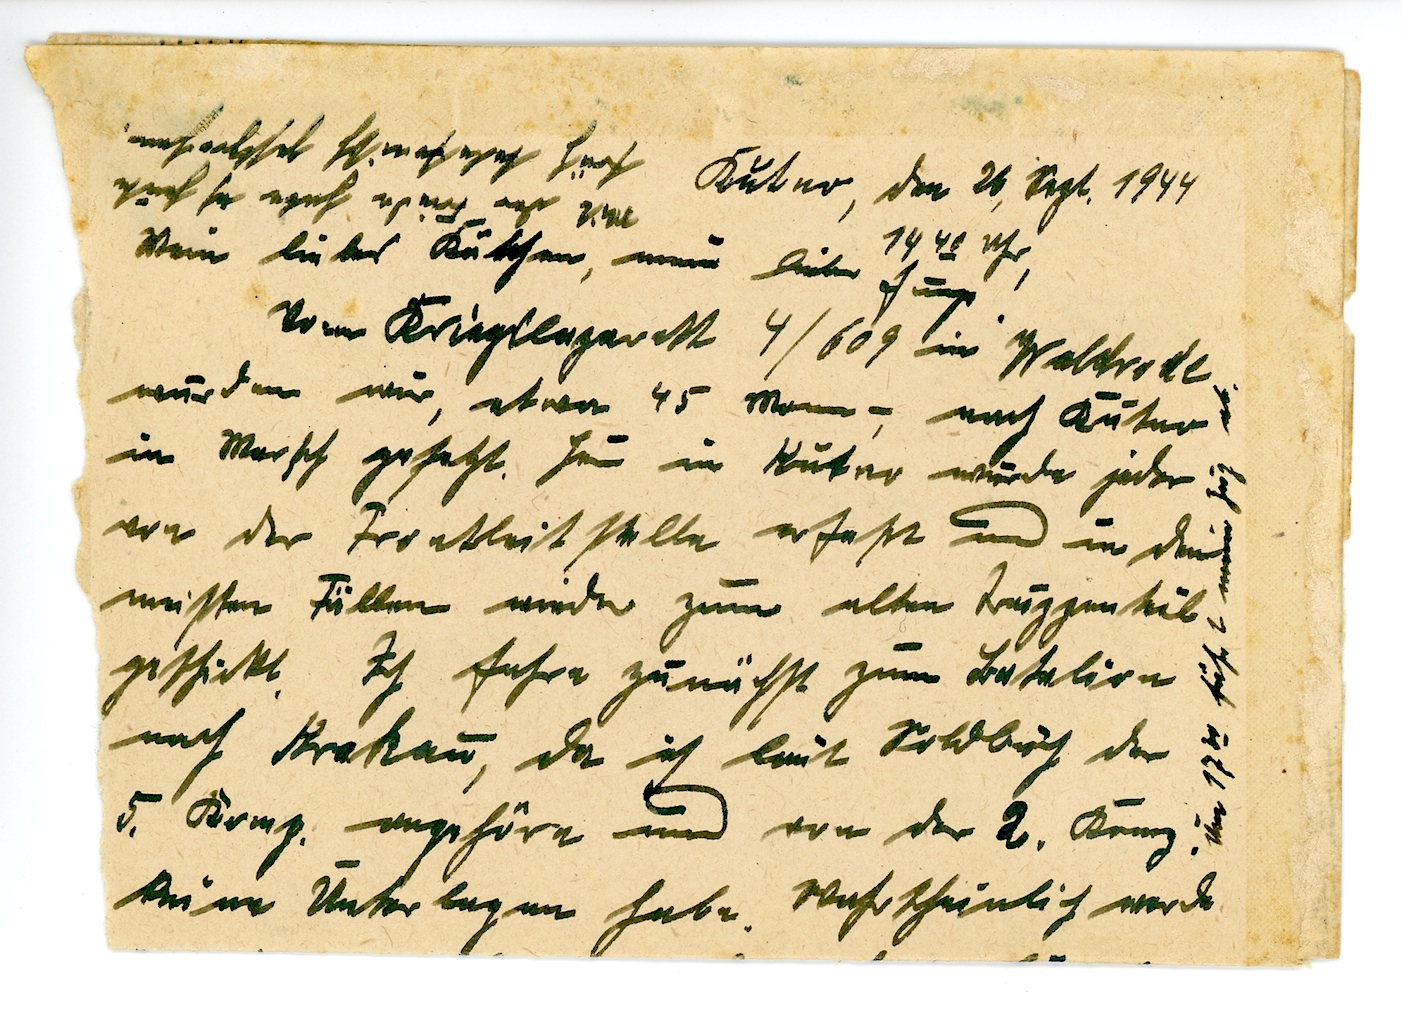 Kutno, den 26. Sept. 1944
14 40 Uhr,
Mein liebes Käthchen, mein lieber Junge!
Vom Kriegslazarett 4/609 in Waldrode
wurden wir, etwa 45 Mann, nach Kutno
in Marsch gesetzt. Hier in Kutno wurde jeder
von der Frontleitstelle erfaßt und in den
meisten Fällen wieder zum alten Truppenteil
geschickt. Ich fahre zunächst zum Batalion
nach Krakau, da ich laut Soldbuch der
5. Komp. angehöre und von der 2. Komp.
keine Unterlagen habe. Wahrscheinlich werde
Um 17 30 fährt mein Zug ab.